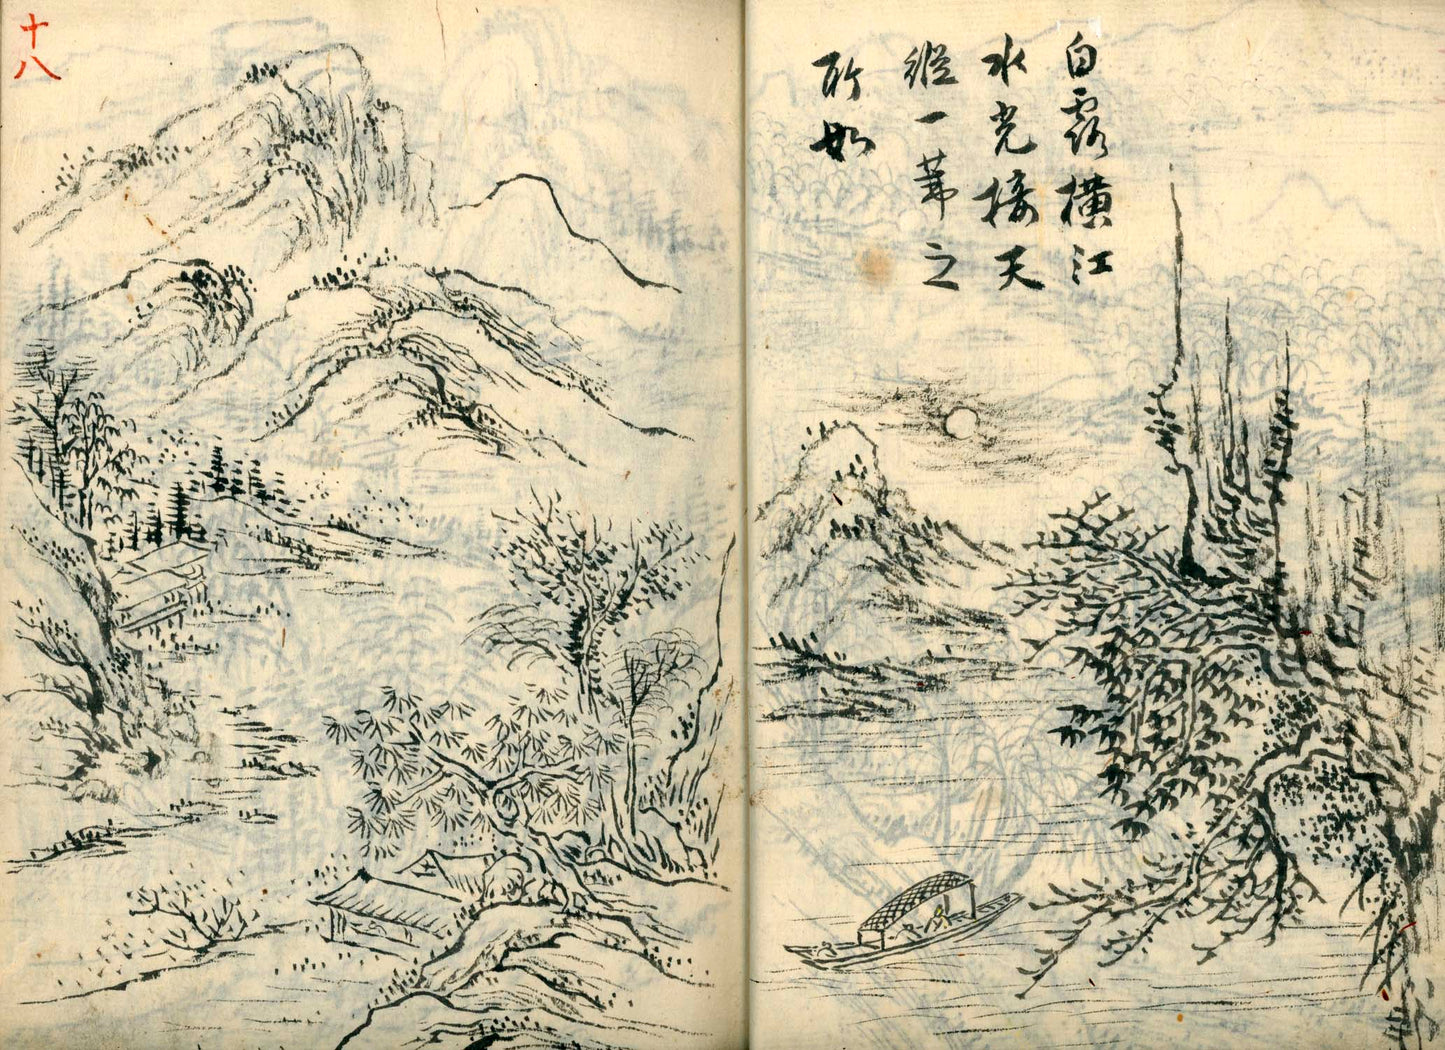 白露横江
水光接天
縦一葦之
所如
十八